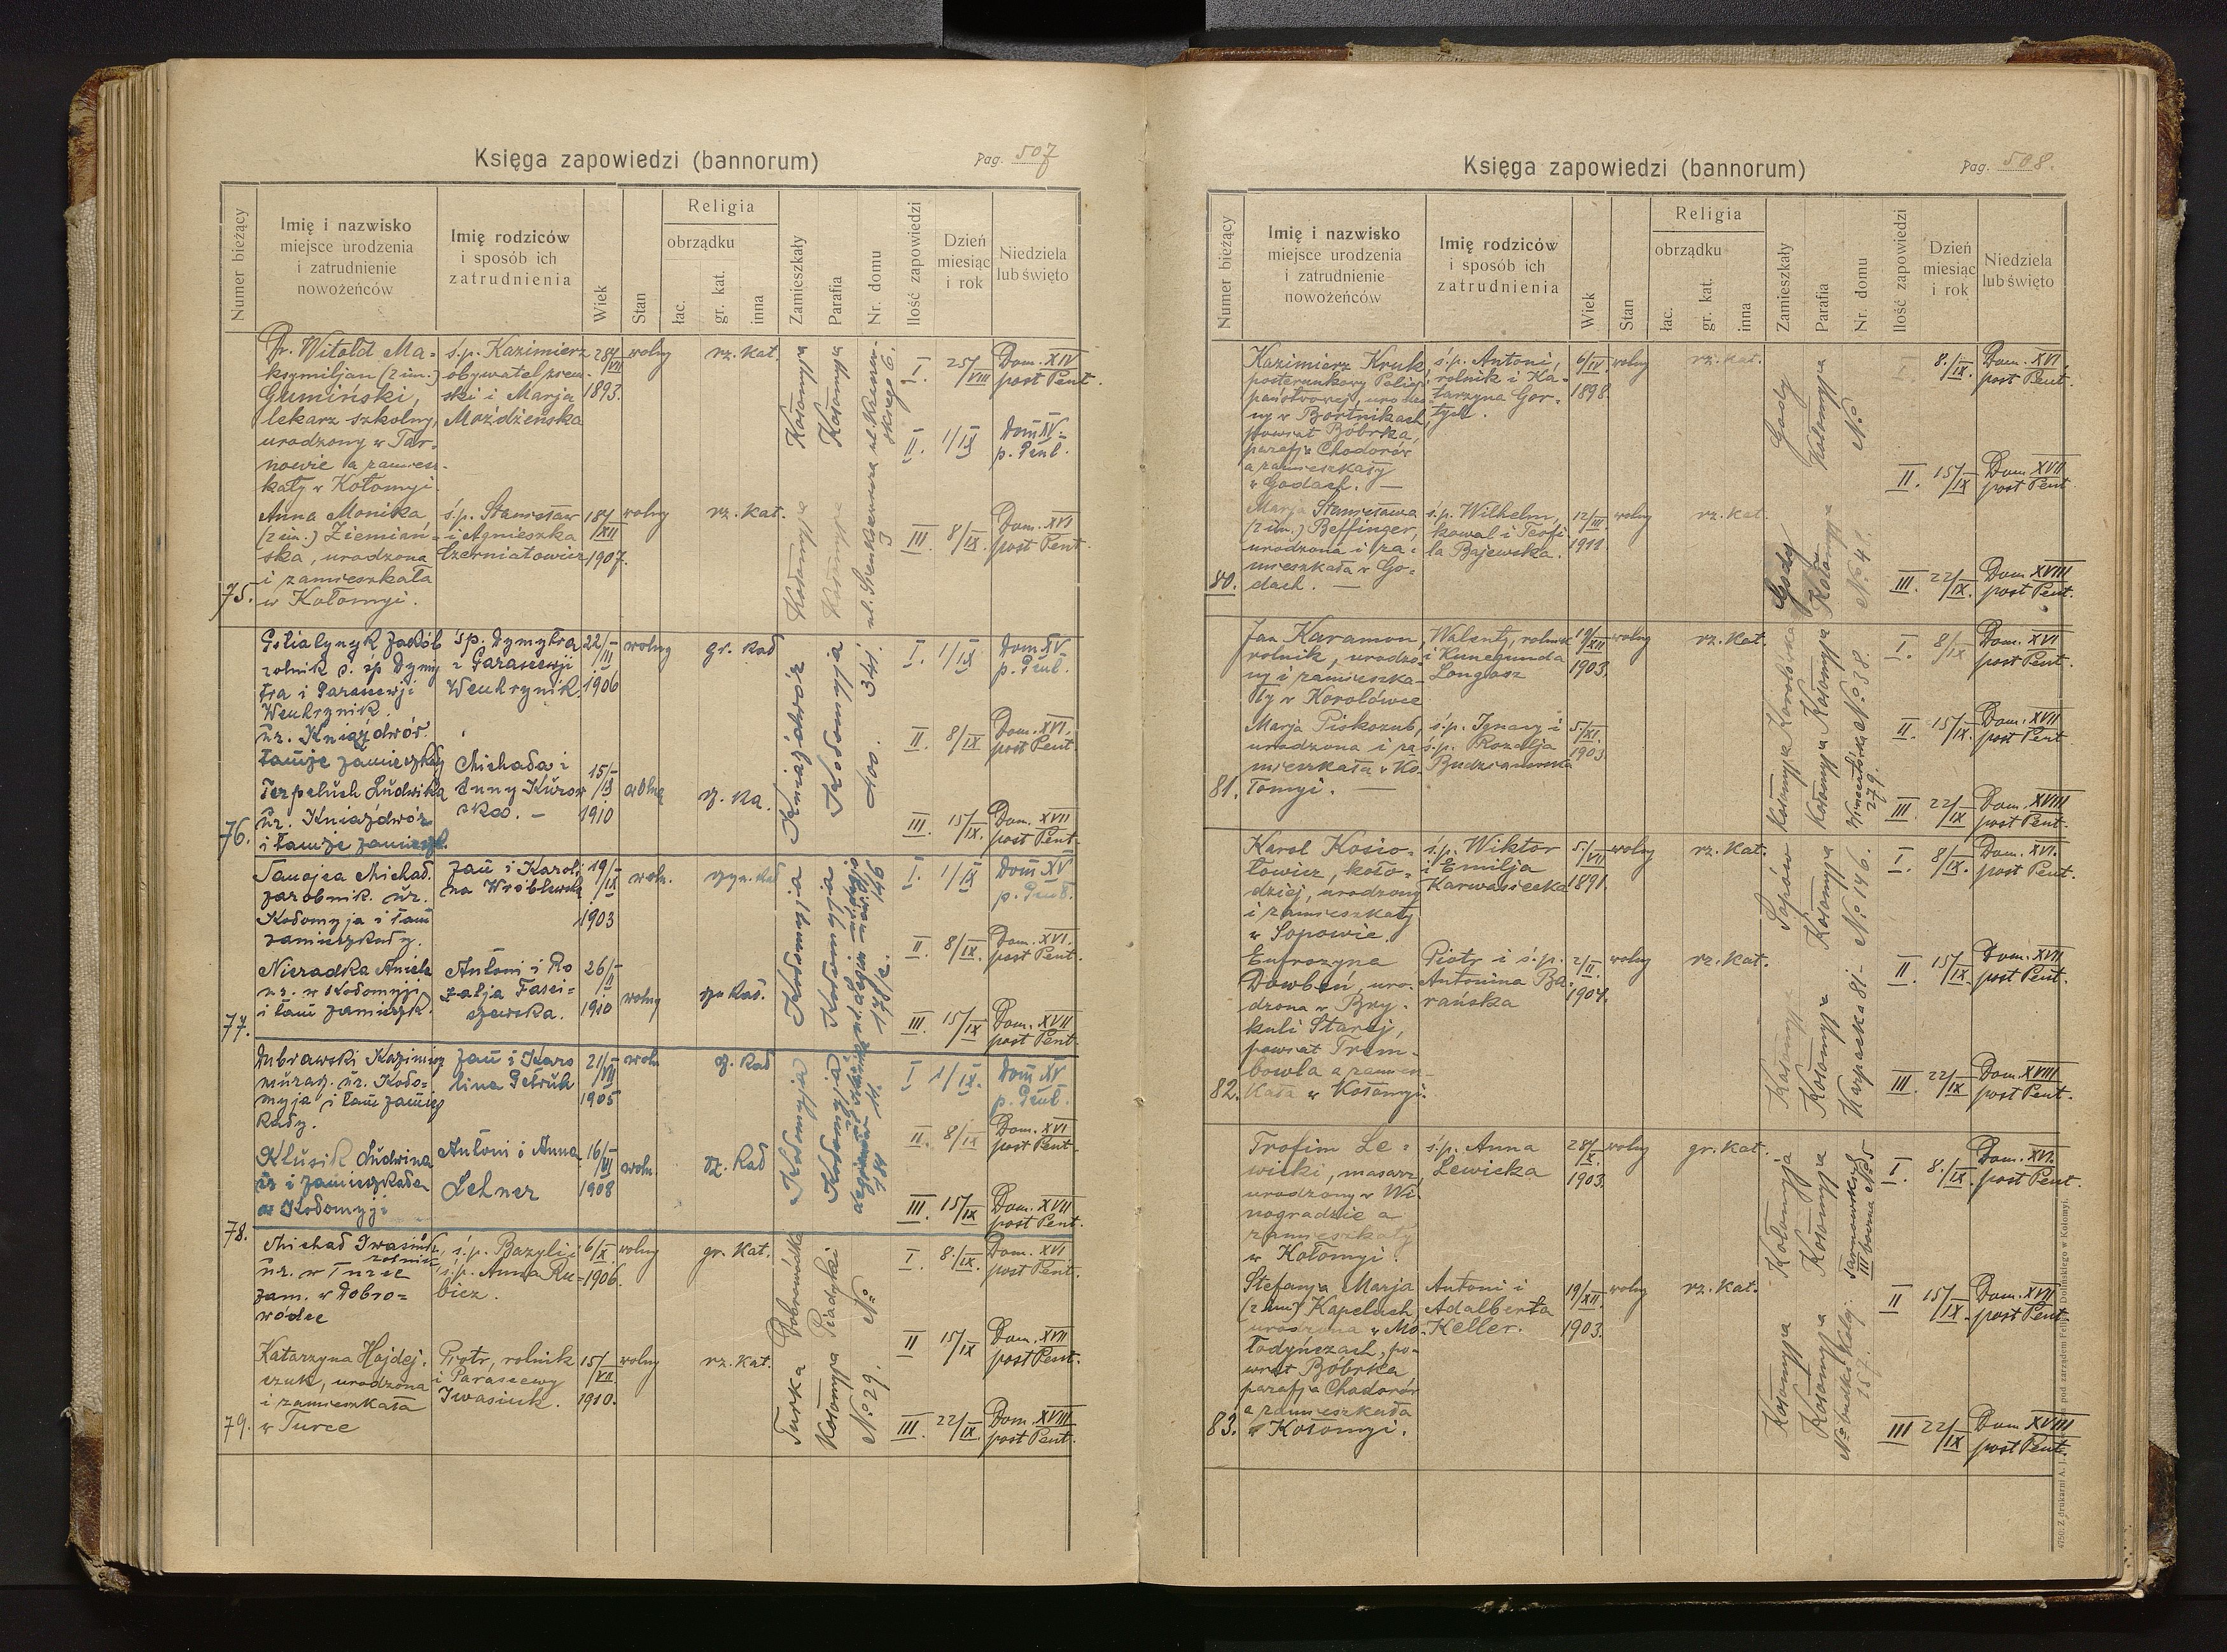 Księga zapowiedzi (bannorum)
Pag. 507
Numer bieżący
Imię i nazwisko
miejsce urodzenia
i zatrudnienie
nowożeńców
Imię rodziców
i sposób ich
zatrudnienia
Wiek
Stan
Religia
obrządku
łac.
gr. kat.
inna
Zamieszkały
Parafia
Nr. domu
Ilość zapowiedzi
Dzień
miesiąc
i rok
Niedziela
lub święto
75.
Dr. Witold Ma-
ksymiljan (2 im.)
Gumiński,
lekarz szkolny,
urodzony w Tar-
nowie a zamiesz-
kały w Kołomyi.
ś.p. Kazimierz
obywatel ziem-
ski i Marja
Moździeńska
28/VII
1893.
wolny
rz. kat.
Kołomyja
Kołomyja
I. 25/VIII Dom. XIV
post Pent.
II. 1/IX Dom XV.
p. Pent.
Anna Monika
(2 im.) Ziemiań-
ska, urodzona
i zamieszkała
w Kołomyi.
ś.p. Stanisław
i Agnieszka
Czerniatowicz
18/XII
1907.
wolny
rz. kat.
Kołomyja
III. 8/IX. Dom. XVI
post Pent.
76.
Jakób
rolnik s. śp Dymy
tra i Parascewji
Weuhrynik.
ur. Kniaźdwór.
tamże zamieszkały
śp. Dymytra
i Parascewji
Weuhrynik.
22/III
1906
wolny
gr. kad
Kniaźdwór
I. 1/IX Dom XV
p. Pent.
II. 8/IX Dom. XVI.
post Pent.
Terpeluch Ludwika
ur. Kniaźdwór
i tamże zamieszk.
Michała i
Anny Kurow
skao. -
15/IX
1910
wolna
rz. ka.
400. 341.
III. 15/IX. Dom. XVII
post Pent.
77.
Michał.
zarobnik. ur.
Kołomyja i tam
zamieszkały.
Jan i Karoli
na Wróblewska
19/IX
1903
woln.
I. 1/IX Dom XV
p. Pent.
II. 8/IX. Dom. XVI.
post Pent.
Nieradka Aniela
ur. w Kołomyji
i tam zamieszk.
Antoni i Ro
zalja Fasci-
szewska.
26/II
1910
wolny
rz. kad.
Kołomyja
III. 15/IX. Dom. XVII
post Pent.
78.
Dubrawski Kazimierz
murarz. ur. Koło-
myja i tam zamiesz
kały.
Jan i Karo
lina Petruk
21/VII
1905
woln
rz. kad
I 1/IX. Dom XV
p. Pent.
II. 8/IX Dom. XVI
post Pent.
Klusik Ludwina
ur i zamieszkała
w Kołomyji
Antoni i Anna
Lehner
16/VI
1908
woln.
rz. kad
Kołomyja
III. 15/IX Dom. XVII
post Pent.
79.
Michał Iwasiuk,
rolnik
ur. w Turce
zam. w Dobro=
wódce
ś.p. Bazyli i
ś.p. Anna Ru-
bicz.
6/X.
1906.
wolny
gr. kat.
Dobrowódka
Piadyki
No
I. 8./IX. Dom. XVI
post Pent.
II 15/IX Dom. XVII
post Pent.
Katarzyna Hajdej-
czuk, urodzona
i zamieszkała
w Turce
Piotr, rolnik
i Parascewy
Iwasiuk.
15/XII
1910.
wolny
rz. kat.
Turka
Kołomyja
No 29.
III. 22/IX. Dom. XVIII
post Pent.
Księga zapowiedzi (bannorum)
Pag. 508.
Numer bieżący
Imię i nazwisko
miejsce urodzenia
i zatrudnienie
nowożeńców
Imię rodziców
i sposób ich
zatrudnienia
Wiek
Stan
Religia
obrządku
łac.
gr. kat.
inna
Zamieszkały
Parafia
Nr. domu
Ilość zapowiedzi
Dzień
miesiąc
i rok
Niedziela
lub święto
80.
Kazimierz Kruk
posterunkowy Policji
państwowej, urodzo-
ny w Bortnikach,
powiat Bóbrka,
parafja Chodorów
a zamieszkały
w Godach. —
ś.p. Antoni,
rolnik i Ka-
tarzyna Gor-
tych.
6/IV.
1898.
wolny
rz. kat.
Gody
Kołomyja
No
I. 8./IX. Dom. XVI
post Pent.
II. 15/IX Dom. XVII
post Pent
Marja Stanisława
(2 im.) Beffinger,
urodzona i za-
mieszkała w Go-
dach. —
ś.p. Wilhelm,
kowal i Teofi
la Bajewska.
12/III
1911.
wolny
rz. kat.
Gody
Kołomyja
No 48.
III. 22/IX. Dom. XVIII
post Pent.
81.
Jan Karamon,
rolnik, urodzo-
ny i zamieszka-
ły w Korolówce
Walenty, rolnik
i Kunegunda
Longosz
19/XII
1903.
wolny
rz. kat.
Korolówka
Kołomyja
No 38.
I. 8/IX Dom. XVI
post Pent.
II. 15/IX. Dom. XVII
post Pent
Marja Piskozub,
urodzona i za-
mieszkała w Ko-
łomyi. —
ś.p. Ignacy i
ś.p. Rozalja
Budzianowska
5/XI.
1903
Kołomyja
Kołomyja
279.
III 22/IX Dom. XVIII
post Pent.
82.
Karol Kosio-
łowicz, koło-
dziej, urodzony
i zamieszkały
w Sopowie.
ś.p. Wiktor
i Emilja
Karwasiecka
5/VII
1891.
wolny
rz. kat.
Sopów
Kołomyja
No 146.
I 8/IX. Dom. XVI.
post Pent.
II 15/IX. Dom. XVII
post Pent.
Eufrozyna
Dowbeń, uro-
dzona w Bry-
kuli Starej,
powiat Trem-
bowla a zamiesz-
kała w Kołomyi.
Piotr i ś.p.
Antonina Ba-
rańska
2/II.
1904.
wolny
rz. kat.
Kołomyja
Kołomyja
Karpacka 81-
III. 22/IX Dom. XVIII
post Pent.
83.
Trofim Le-
wicki, masarz,
urodzony w Wi-
nogradzie a
zamieszkały
w Kołomyi.
ś.p. Anna
Lewicka
28/X.
1903.
wolny
gr. kat.
Kołomyja
Kołomyja
I 8./IX. Dom. XVI.
post Pent.
II 15/IX. Dom. XVII
post Pent.
Stefanja Marja
(2 im.) Kapeluch
urodzona w Mo-
łodyńczach, po-
wiat Bóbrka
parafja Chodorów
a zamieszkała
w Kołomyi.
Antoni i
Adalberta
Keller.
19/XII.
1903.
wolny
rz. kat.
Kołomyja
Kołomyja
No budki kolej.
257.
III 22/IX Dom XVIII
post Pent.